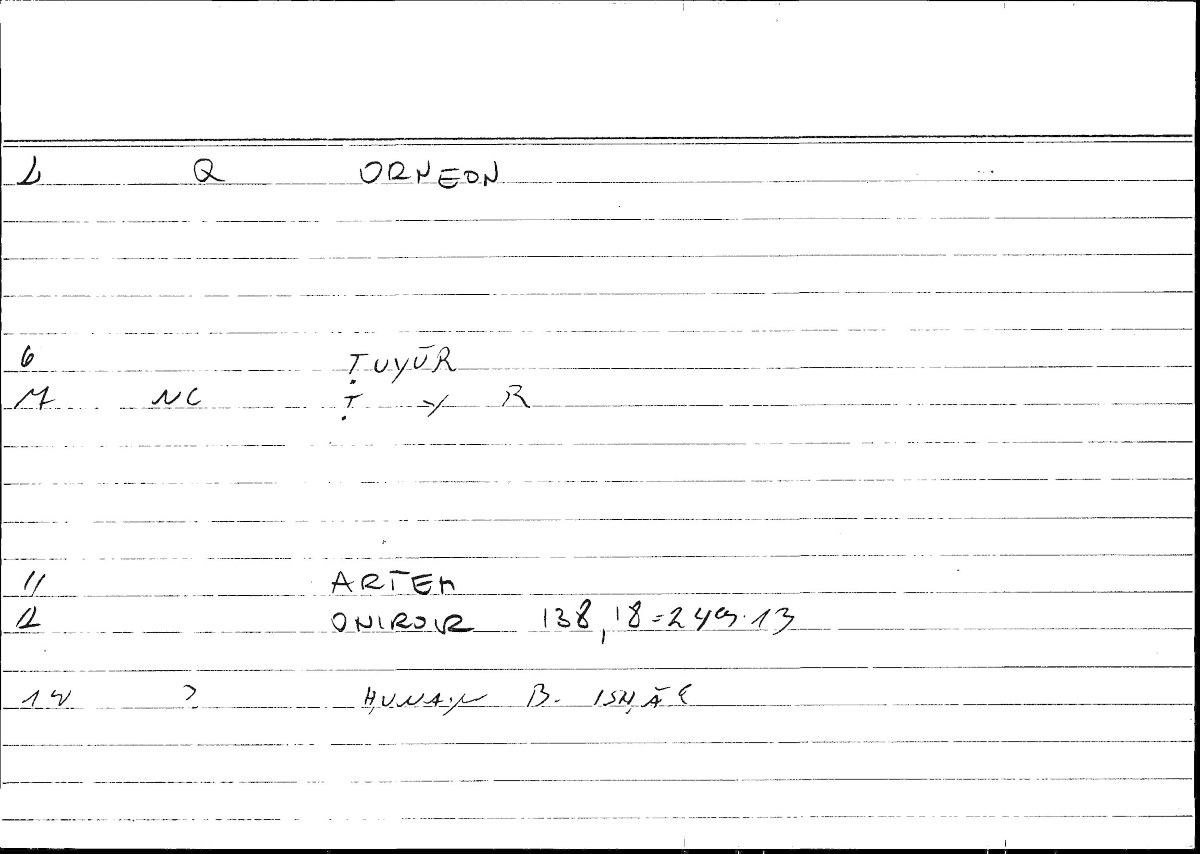 1 Q ORNEON
6 ṬUYŪR
7 NC Ṭ Y R
11 ARTEM
12 ONIROIR 138,18=249.13
14 ? ḤUNAYN B. ISḤĀQ